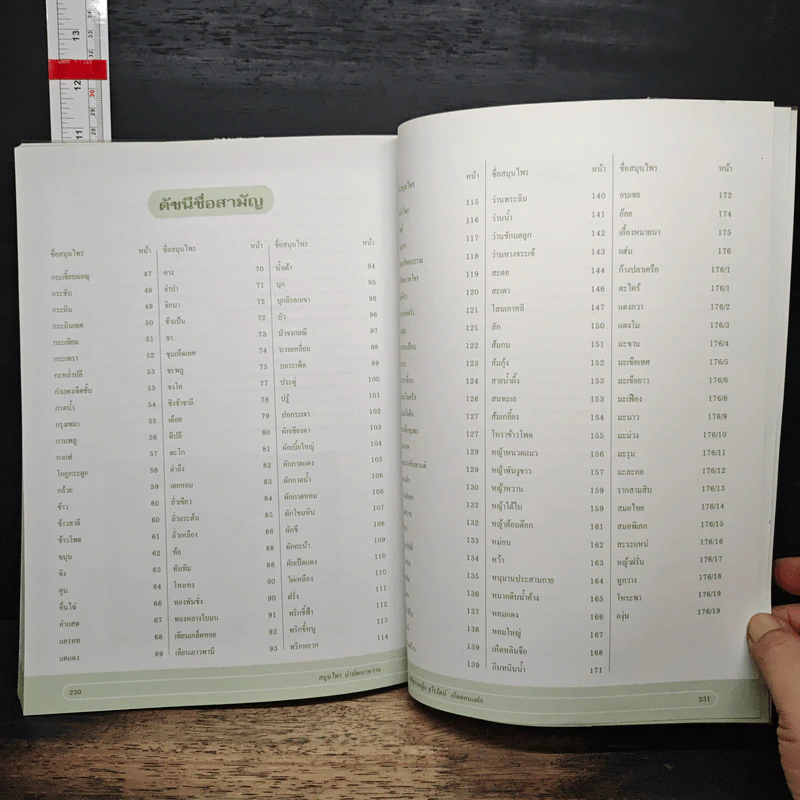 ดัชนีชื่อสามัญ
ชื่อสมุนไพร หน้า
กระเจี๊ยบมอญ 47
กระชับ 48
กระถิน 49
กระถินเทศ 50
กระเทียม 51
กระเพรา 52
กะหล่ำปลี 53
กำแพงเจ็ดชั้น 53
กรดน้ำ 54
กรุงเขมา 55
กานพลู 56
กาแฟ 57
โกฎกระดูก 58
กล้วย 59
ข้าว 60
ข้าวสาลี 60
ข้าวโพด 61
ขนุน 62
ขิง 63
คูน 64
คื่นไช่ 66
คำแสด 67
แครอท 68
แคแดง 69
ชื่อสมุนไพร หน้า
คาง 70
จำปา 71
จิกนา 72
ช้าแป้น 72
ชา 73
ชุมเห็ดเทศ 74
ชะพลู 75
ชงโค 77
ชิงช้าชาลี 78
เดือย 79
ดีปลี 80
ตะโก 81
ตำลึง 82
เตยหอม 83
ถั่วเขียว 84
ถั่วแระต้น 85
ถั่วเหลือง 86
ท้อ 88
ทับทิม 88
โทงเทง 90
ทองพันชั่ง 90
ทองหลางใบมน 91
เทียนเกล็ดหอย 92
เทียนเยาวพาณี 93
ชื่อสมุนไพร หน้า
น้ำเต้า 94
บุก 95
บุกอีรอกเขา 96
บัว 96
บัวจงกลณี 97
บวบเหลี่ยม 98
บอระเพ็ด 99
ประดู่ 100
ปรู๋ 101
ปอกระเจา 102
ผักเชียงดา 103
ผักเบี้ยใหญ่ 104
ผักกาดแดง 105
ผักกาดน้ำ 106
ผักกาดหอม 106
ผักโขมหิน 107
ผักชี 108
ผักคะน้า 109
ผักเป็ดแดง 110
ไผ่เหลือง 110
ฝรั่ง 111
พริกชี้ฟ้า 112
พริกขี้หนู 113
พริกหยวก 114
230
สมุนไพร บำบัดเบาหวาน
หน้า
115
116
117
118
119
120
121
121
122
123
124
126
127
127
129
132
132
133
134
135
136
137
138
139
139
ชื่อสมุนไพร หน้า
ว่านพระฉิม 140
ว่านน้ำ 141
ว่านชักมดลูก 142
ว่านหางจระเข้ 143
สะตอ 144
สะเดา 146
โสมเกาหลี 147
สัก 150
ส้มกบ 151
ส้มกุ้ง 152
สายน้ำผึ้ง 153
สนทะเล 153
ส้มเกลี้ยง 154
โหราข้าวโพด 155
หญ้าหนวดแมว 155
หญ้าพันงูขาว 157
หญ้าหวาน 159
หญ้าใต้ใบ 159
หญ้าต้อมต๊อก 161
หม่อน 162
หว้า 163
หนุมานประสานกาย 164
หมากดิบน้ำค้าง 165
หอมแดง 166
หอมใหญ่ 167
เห็ดหลินจือ 168
อินทนินน้ำ 171
ชื่อสมุนไพร หน้า
อบเชย 172
อ้อย 174
เอื้องหมายนา 175
แฮ่ม 176
ก้างปลาเครือ 176/1
ตะไคร้ 176/1
แตงกวา 176/2
แตงโม 176/3
มะขาม 176/4
มะเขือเทศ 176/5
มะเขือยาว 176/6
มะเฟือง 176/8
มะนาว 176/9
มะม่วง 176/10
มะรุม 176/11
มะละกอ 176/12
รากสามสิบ 176/13
สมอไทย 176/14
สมอพิเภก 176/15
สะระแหน่ 176/16
หญ้าฝรั่น 176/17
หูกวาง 176/18
โหระพา 176/19
องุ่น 176/19
231
11
12
13